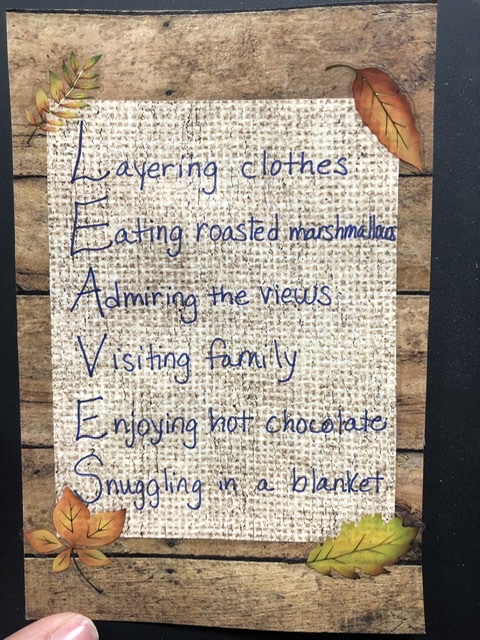 Layering clothes
Eating roasted marshmallows
Admiring the views
Visiting family
Enjoying hot chocolate
Snuggling in a blanket